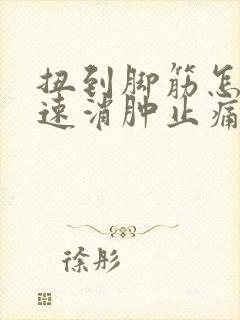 扭到脚筋怎
速消肿止痛
徐彤